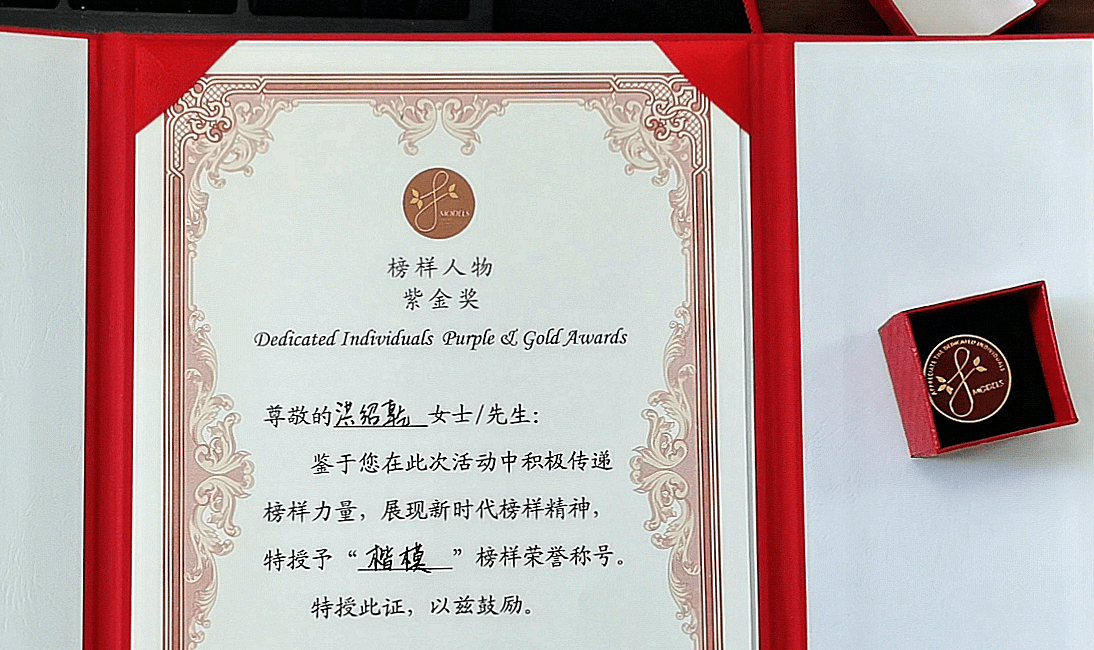 MODELS
榜样人物
紫金奖
Dedicated Individuals Purple & Gold Awards
尊敬的洪绍乾 女士/先生:
鉴于您在此次活动中积极传递
榜样力量，展现新时代榜样精神，
特授予“楷模”榜样荣誉称号。
特授此证，以兹鼓励。
APPRECIATE THE DEDICATED INDIVIDUALS
MODELS